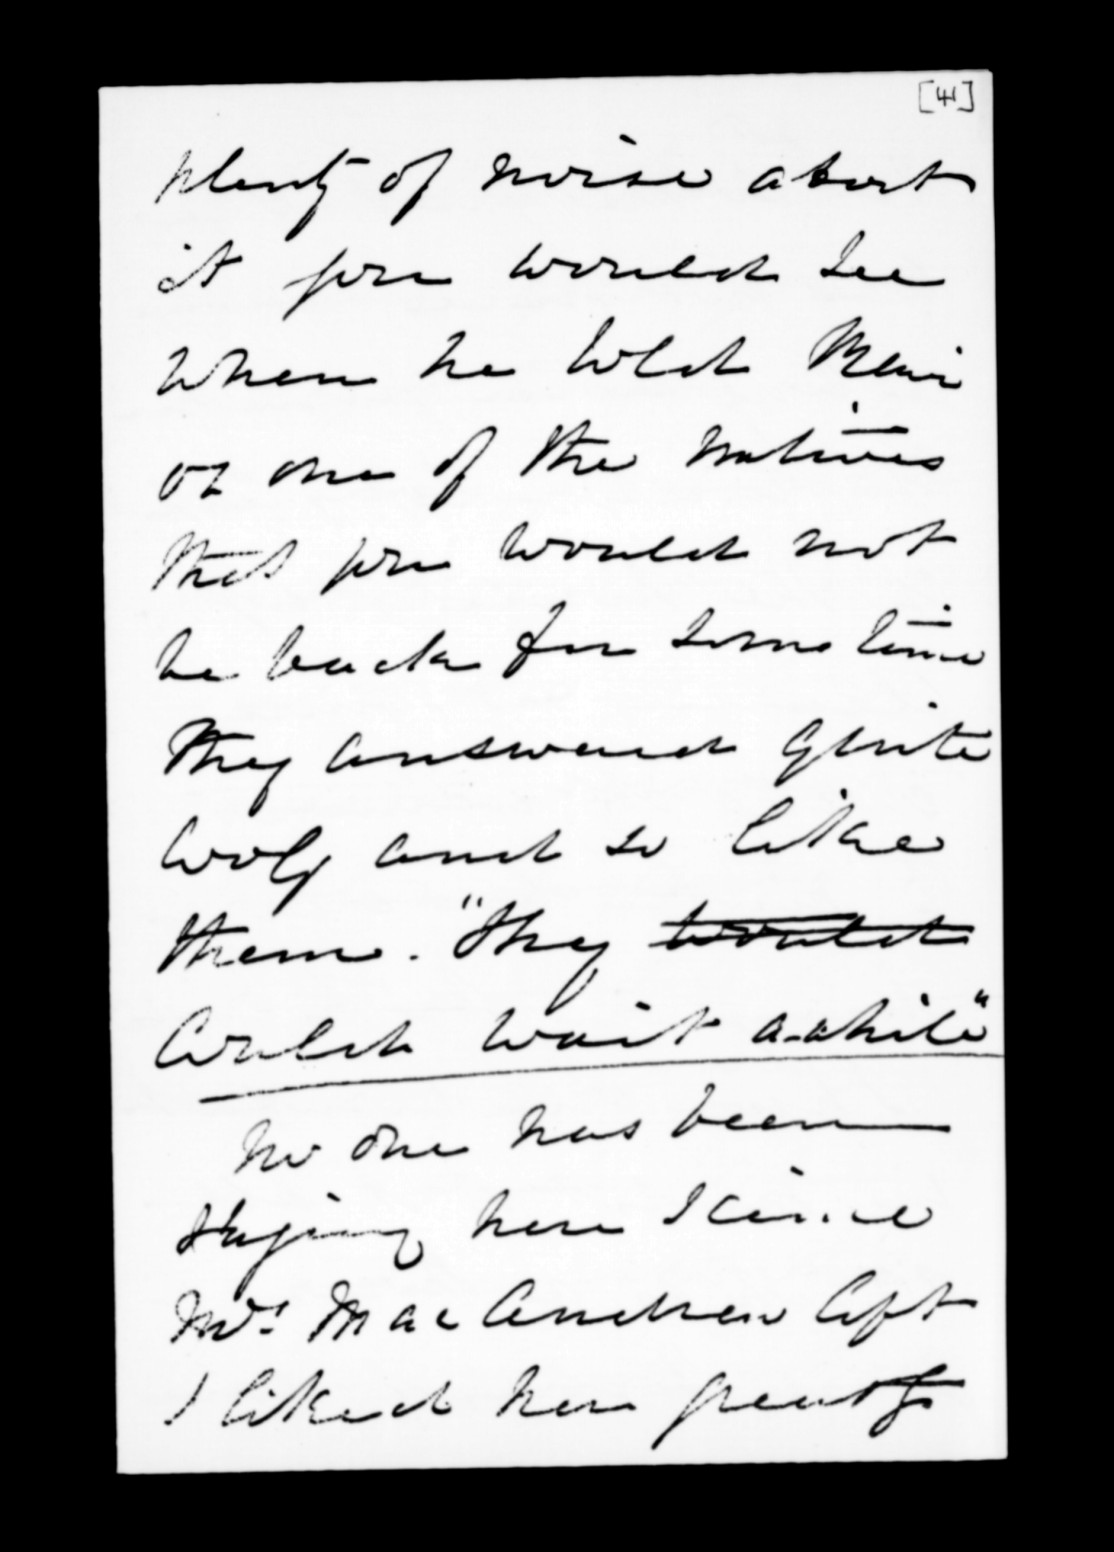 [4]
plenty of noise about
it you would see
when he told
or one of the natives
that you would not
be back for some time
They answered quite
cooly and so like
them. "they would
could wait a-while"
No one has been
staying here scince
Mrs. MacAndrew left
I liked her greatly